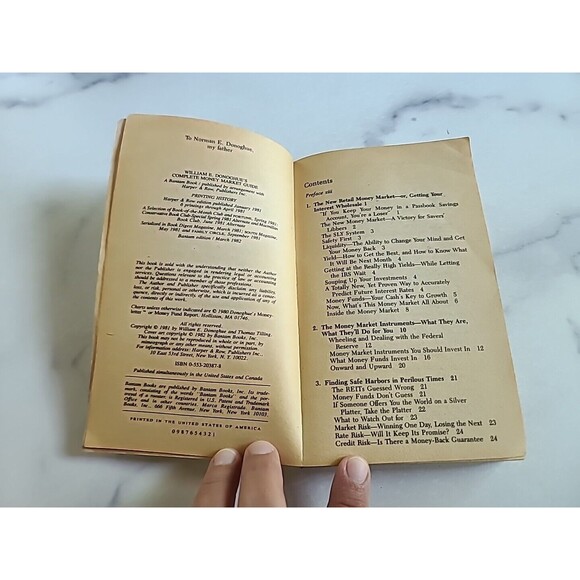 To Norman E. Donoghue,
my father
WILLIAM E. DONOGHUE'S
COMPLETE MONEY MARKET GUIDE
A Bantam Book / published by arrangement with
Harper & Row, Publishers Inc.
PRINTING HISTORY
Harper & Row edition published January 1981
8 printings through 1981
A Selection of Book-of-the-Month Club and FORTUNE, Spring 1981,
Conservative Book Club Special Spring 1981 Alternate and Macmillan
Book Club, June 1981 Alternate
Serialized in Book Digest Magazine, March 1981; MONEY Magazine,
May 1981 and FAMILY CIRCLE, September 1981
Bantam edition / March 1982
This book is sold with the understanding that neither the Author
nor the Publisher is engaged in rendering legal or accounting
services. Questions relevant to the practice of law or accounting
should be addressed to a member of those professions.
The Author and Publisher specifically disclaim any liability,
loss, or risk, personal or otherwise, which is incurred as a consequence,
directly or indirectly, of the use and application of any of
the contents of this work.
Charts unless otherwise indicated are © 1980 Donoghue's Moneyletter
or Money Fund Report, Holliston, MA 01746.
All rights reserved.
Copyright © 1981 by William E. Donoghue and Thomas Tilling.
Cover art copyright © 1982 by Bantam Books, Inc.
This book may not be reproduced in whole or in part, by
mimeograph or any other means, without permission.
For information address: Harper & Row, Publishers Inc.,
10 East 53rd Street, New York, N. Y. 10022
ISBN 0-553-20387-8
Published simultaneously in the United States and Canada
Bantam Books are published by Bantam Books, Inc. Its trademark,
consisting of the words "Bantam Books" and the portrayal
of a rooster, is Registered in U.S. Patent and Trademark
Office and in other countries. Marca Registrada. Bantam
Books, Inc., 666 Fifth Avenue, New York, New York 10103.
PRINTED IN THE UNITED STATES OF AMERICA
0 9 8 7 6 5 4 3 2 1
Contents
Preface xiii
1. The New Retail Money Market—or, Getting Your
Interest Wholesale 1
If You Keep Your Money in a Passbook Savings
Account, You're a Loser 1
The New Money Market—A Victory for Savers'
Libbers 2
The SLY System 3
Safety First 3
Liquidity—The Ability to Change Your Mind and Get
Your Money Back 3
Yield—How to Get the Best, and How to Know What
It Will Be Next Month 4
Getting at the Really High Yields—While Letting
the IRS Wait 4
Souping Up Your Investments 4
A Totally New, Yet Proven Way to Accurately
Predict Future Interest Rates 4
Money Funds—Your Cash's Key to Growth 5
Now, What's This Money Market All About 6
Inside the Money Market 8
2. The Money Market Instruments—What They Are,
What They'll Do for You 10
Wheeling and Dealing with the Federal
Reserve 12
Money Market Instruments You Should Invest In 12
What Money Funds Invest In 16
Onward and Upward 20
3. Finding Safe Harbors in Perilous Times 21
The REITs Guessed Wrong 21
Money Funds Don't Guess 21
If Someone Offers You the World on a Silver
Platter, Take the Platter 22
What to Watch Out for 23
Market Risk—Winning One Day, Losing the Next 23
Rate Risk—Will It Keep Its Promise? 24
Credit Risk—Is There a Money-Back Guarantee 24